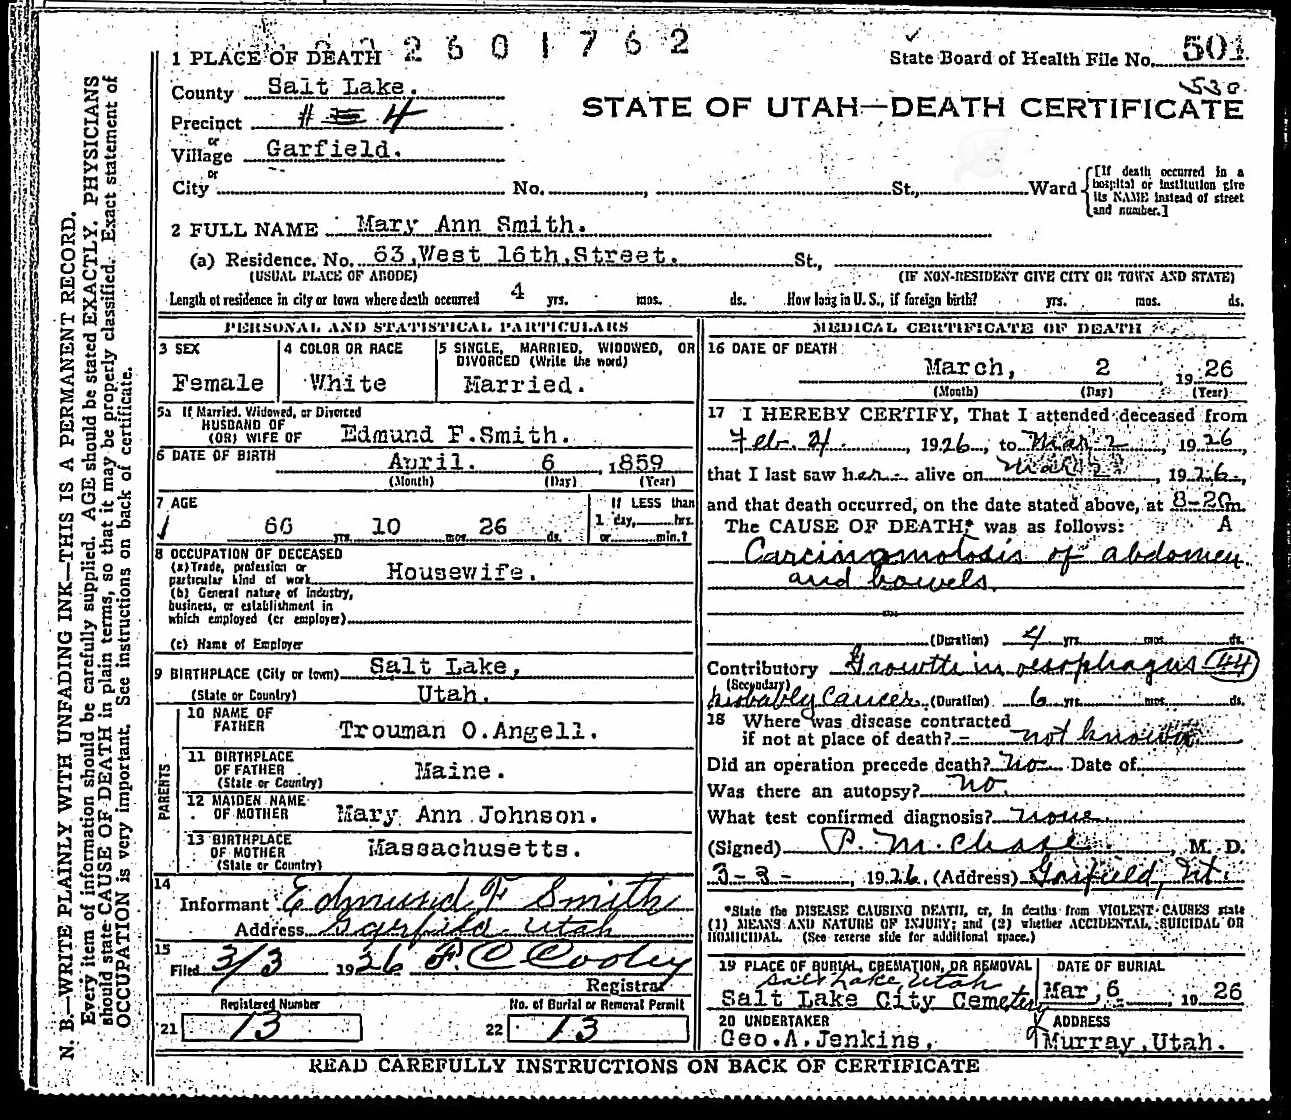 2601762
1 PLACE OF DEATH
State Board of Health File No. 501
530
County Salt Lake.
STATE OF UTAH—DEATH CERTIFICATE
Precinct # 4
or
Village Garfield.
or
City No. , St., Ward
[If death occurred in a
hospital or institution give
its NAME instead of street
and number.]
2 FULL NAME Mary Ann Smith.
(a) Residence. No. 63 West 16th.Street. St.,
(USUAL PLACE OF ABODE) (IF NON-RESIDENT GIVE CITY OR TOWN AND STATE)
Length of residence in city or town where death occurred 4 yrs. mos. ds. How long in U. S., if foreign birth? yrs. mos. ds.
PERSONAL AND STATISTICAL PARTICULARS
3 SEX
Female
4 COLOR OR RACE
White
5 SINGLE, MARRIED, WIDOWED, OR
DIVORCED (Write the word)
Married.
5a If Married, Widowed, or Divorced
HUSBAND OF
(OR) WIFE OF Edmund F.Smith.
6 DATE OF BIRTH
April. 6 , 1859
(Month) (Day) (Year)
7 AGE
66 yrs. 10 mos. 26 ds.
If LESS than
1 day, hrs.
or min.?
8 OCCUPATION OF DECEASED
(a) Trade, profession or
particular kind of work Housewife.
(b) General nature of industry,
business, or establishment in
which employed (or employer)
(c) Name of Employer
9 BIRTHPLACE (City or town) Salt Lake,
(State or Country) Utah.
PARENTS
10 NAME OF
FATHER Trouman O.Angell.
11 BIRTHPLACE
OF FATHER Maine.
(State or Country)
12 MAIDEN NAME
OF MOTHER Mary Ann Johnson.
13 BIRTHPLACE
OF MOTHER Massachusetts.
(State or Country)
14
Informant Edmund F Smith
Address Garfield Utah
15
Filed 3/3 1926 F. C Cooley
Registrar
Registered Number
21 13
No. of Burial or Removal Permit
22 13
MEDICAL CERTIFICATE OF DEATH
16 DATE OF DEATH
March, 2 , 19 26
(Month) (Day) (Year)
17 I HEREBY CERTIFY, That I attended deceased from
Feb. 4 , 1926, to Mar 2 , 1926
that I last saw her alive on Mar 2 , 1926,
and that death occurred, on the date stated above, at 8-20 m.
The CAUSE OF DEATH* was as follows: A
Carcinomotosis of abdomen
and bowels.
(Duration) 4 yrs. mos. ds.
Contributory Growth in oesophagus 44
(Secondary)
probably Cancer (Duration) 6 yrs. mos. ds.
18 Where was disease contracted
if not at place of death? not known
Did an operation precede death? No Date of
Was there an autopsy? No.
What test confirmed diagnosis? none
(Signed) P. M. Chase , M. D.
3-3- , 1926. (Address) Garfield, Ut.
*State the DISEASE CAUSING DEATH, or, in deaths from VIOLENT CAUSES state
(1) MEANS AND NATURE OF INJURY; and (2) whether ACCIDENTAL, SUICIDAL OR
HOMICIDAL. (See reverse side for additional space.)
19 PLACE OF BURIAL, CREMATION, OR REMOVAL
Salt Lake, Utah
Salt Lake City Cemetery
DATE OF BURIAL
Mar, 6 , 19 26
20 UNDERTAKER
Geo.A.Jenkins,
ADDRESS
Murray,Utah.
READ CAREFULLY INSTRUCTIONS ON BACK OF CERTIFICATE
N. B.—WRITE PLAINLY WITH UNFADING INK—THIS IS A PERMANENT RECORD.
Every item of information should be carefully supplied. AGE should be stated EXACTLY. PHYSICIANS
should state CAUSE OF DEATH in plain terms, so that it may be properly classified. Exact statement of
OCCUPATION is very important. See instructions on back of certificate.